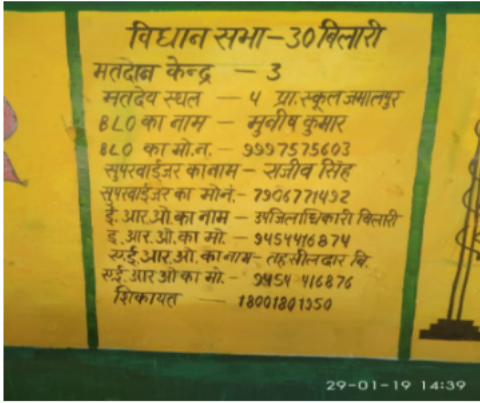 विधान सभा-30 बिलारी
मतदान केन्द्र - 3
मतदेय स्थल - 4 प्रा.स्कूल जमालपुर
BLO का नाम - मुनीष कुमार
BLO का मो.न. - 9997575603
सुपरवाईजर का नाम - राजीव सिंह
सुपरवाईजर का मो.नं.- 7906771492
ई.आर.ओ.का नाम - उपजिलाधिकारी बिलारी
इ.आर.ओ.का मो. - 9454416874
एई.आर.ओ.का नाम- तहसीलदार बि.
एई.आर.ओ का मो.- 9454 416876
शिकायत - 18001801950
29-01-19 14:39